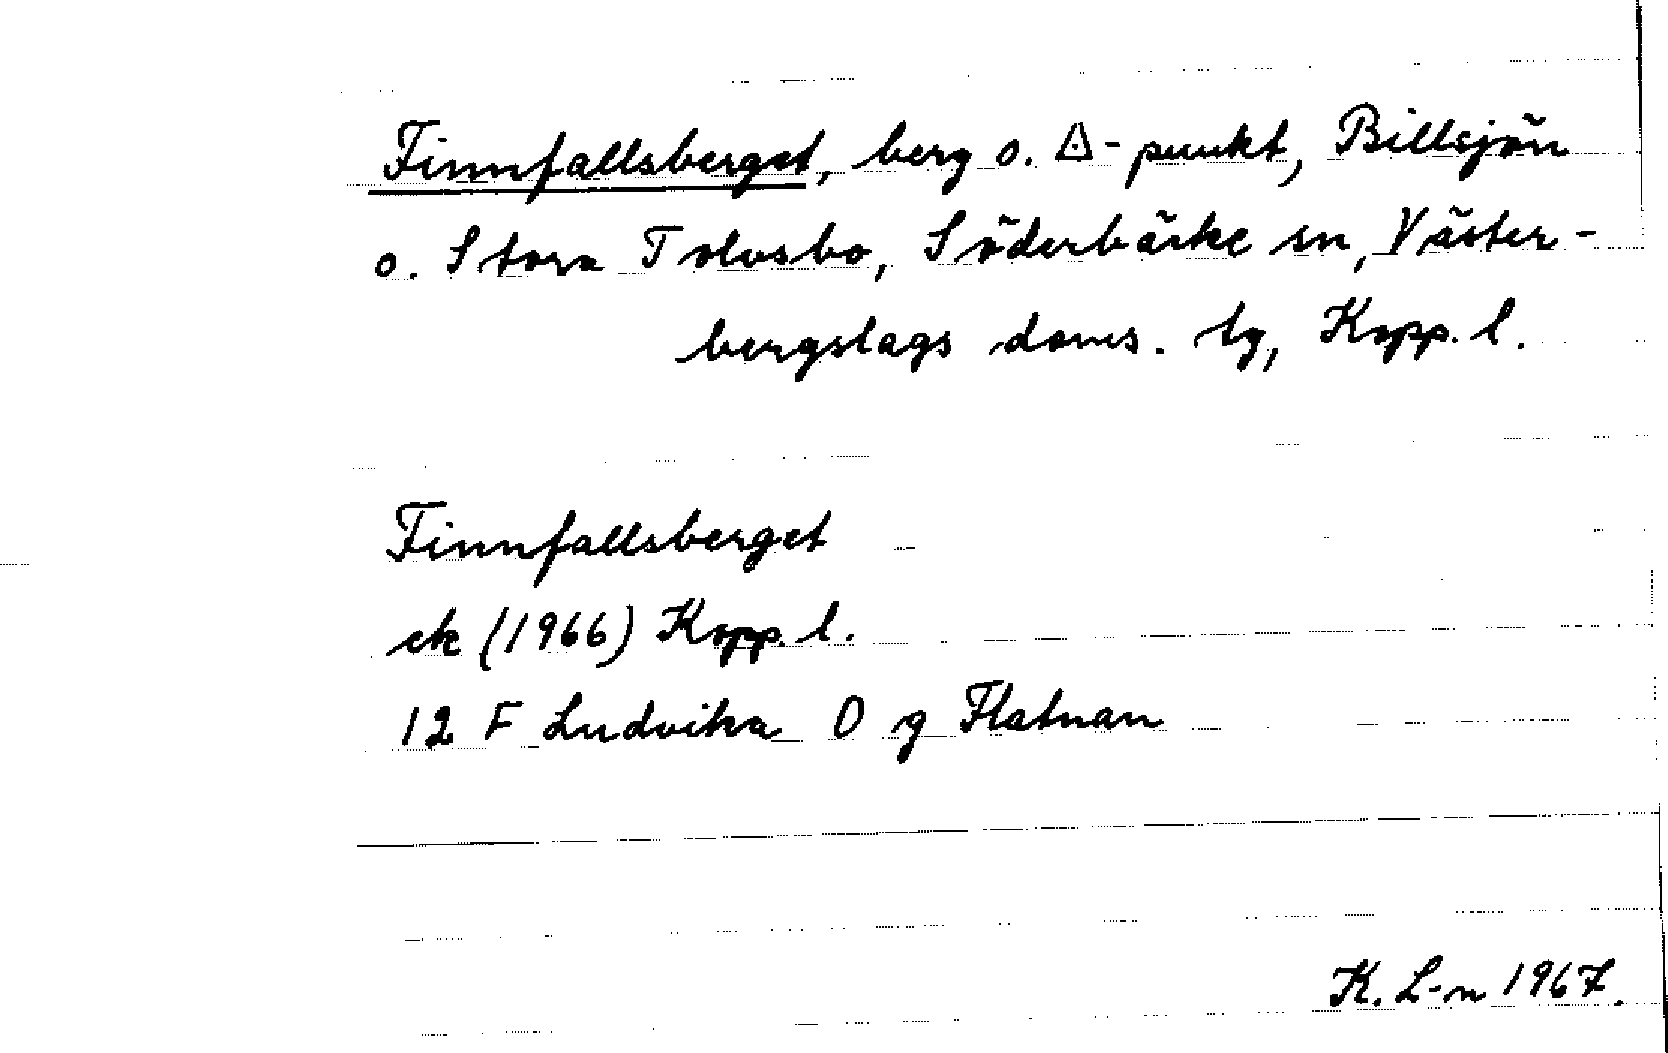 Finnfallsberget, berg o. △-punkt, Billsjön
o. Stora Tolvsbo, Söderbärke sn, Väster-
bergslags doms. lg, Kopp. l.
Finnfallsberget
ek (1966) Kopp. l.
12 F Ludvika O g Flatnan
K. L-n 1967.